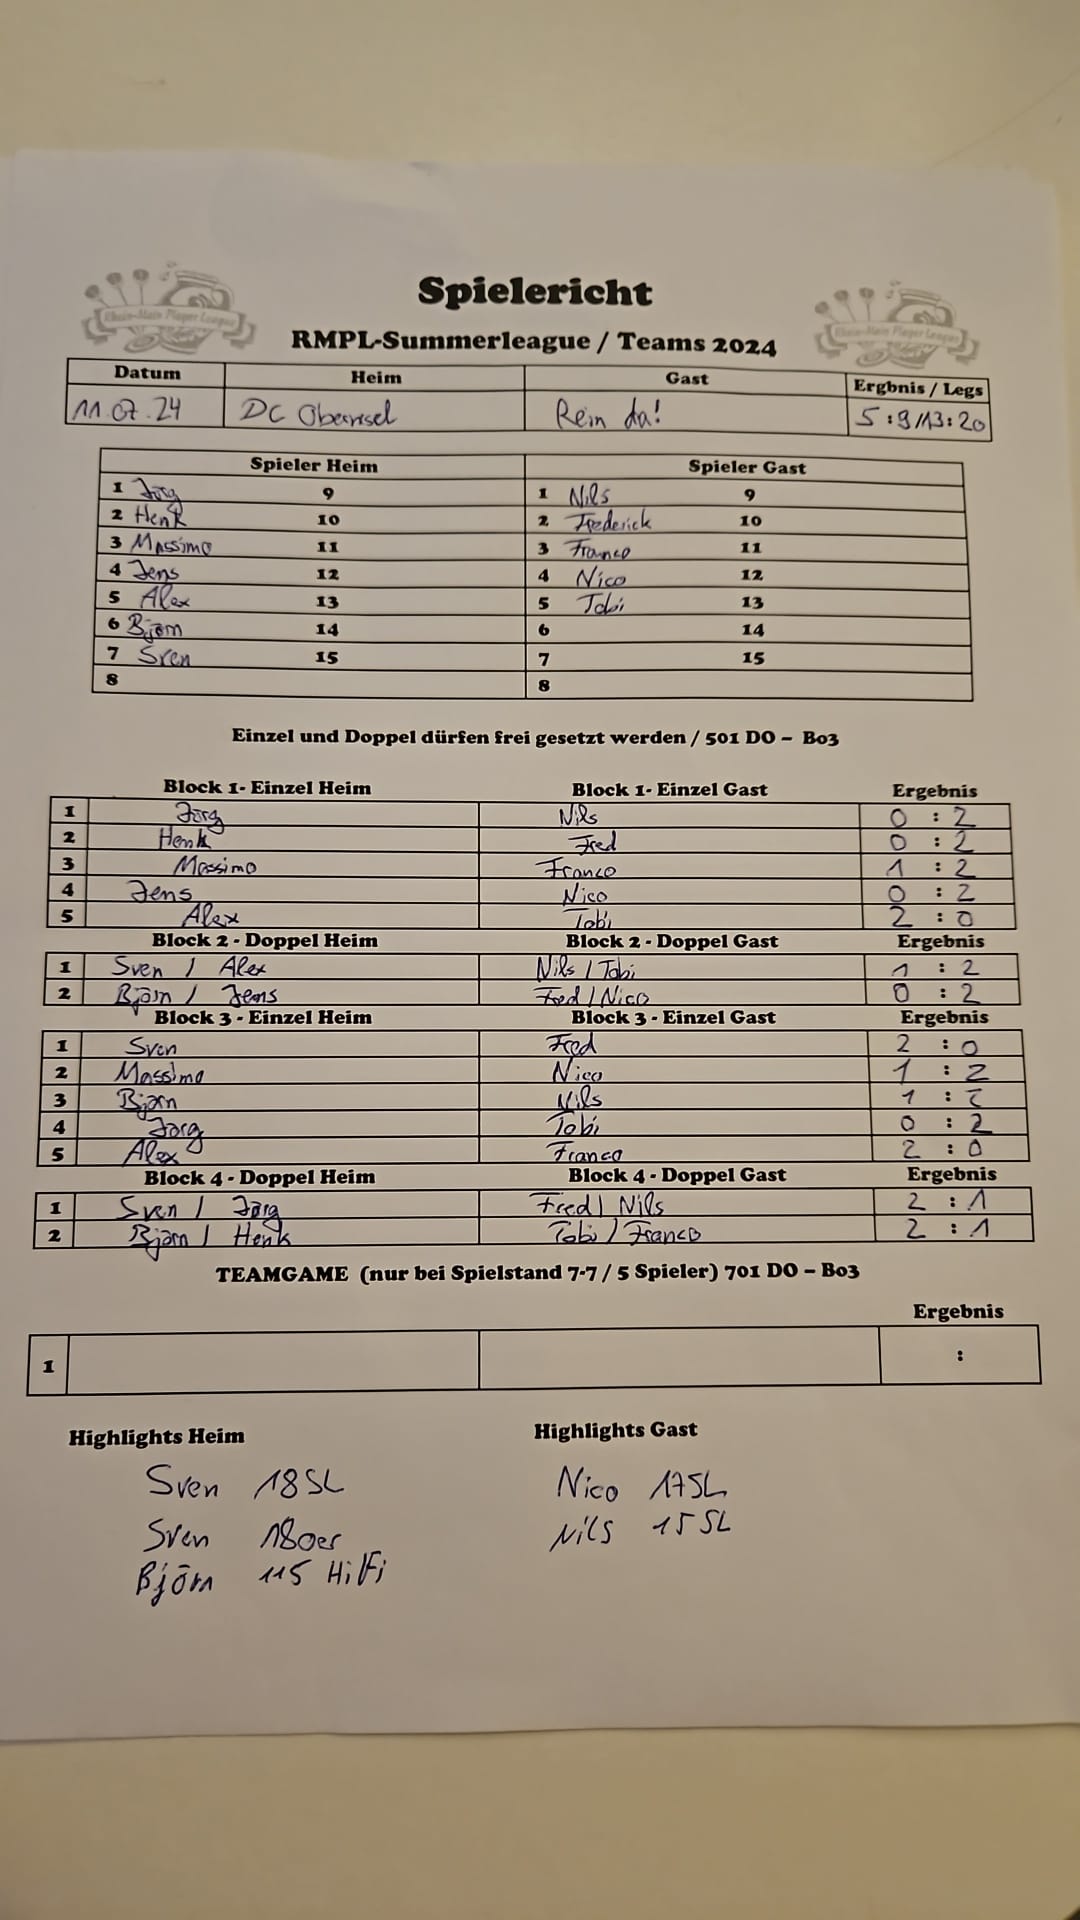 Spielericht
Rhein-Main Player League
Rhein-Main Player League
RMPL-Summerleague / Teams 2024
Datum Heim Gast Ergbnis / Legs
11.07.24 DC Oberursel Rein da! 5:9/13:20
Spieler Heim Spieler Gast
1 Jörg 9 1 Nils 9
2 Henk 10 2 Frederick 10
3 Massimo 11 3 Franco 11
4 Jens 12 4 Nico 12
5 Alex 13 5 Tobi 13
6 Björn 14 6 14
7 Sven 15 7 15
8 8
Einzel und Doppel dürfen frei gesetzt werden / 501 DO – Bo3
Block 1- Einzel Heim Block 1- Einzel Gast Ergebnis
1 Jörg Nils 0 : 2
2 Henk Fred 0 : 2
3 Massimo Franco 1 : 2
4 Jens Nico 0 : 2
5 Alex Tobi 2 : 0
Block 2 - Doppel Heim Block 2 - Doppel Gast Ergebnis
1 Sven / Alex Nils / Tobi 1 : 2
2 Björn / Jens Fred / Nico 0 : 2
Block 3 - Einzel Heim Block 3 - Einzel Gast Ergebnis
1 Sven Fred 2 : 0
2 Massimo Nico 1 : 2
3 Björn Nils 1 : 2
4 Jörg Tobi 0 : 2
5 Alex Franco 2 : 0
Block 4 - Doppel Heim Block 4 - Doppel Gast Ergebnis
1 Sven / Jörg Fred / Nils 2 : 1
2 Björn / Henk Tobi / Franco 2 : 1
TEAMGAME (nur bei Spielstand 7-7 / 5 Spieler) 701 DO – Bo3
Ergebnis
1 :
Highlights Heim Highlights Gast
Sven 18SL Nico 17SL
Sven 180er Nils 15 SL
Björn 115 HiFi